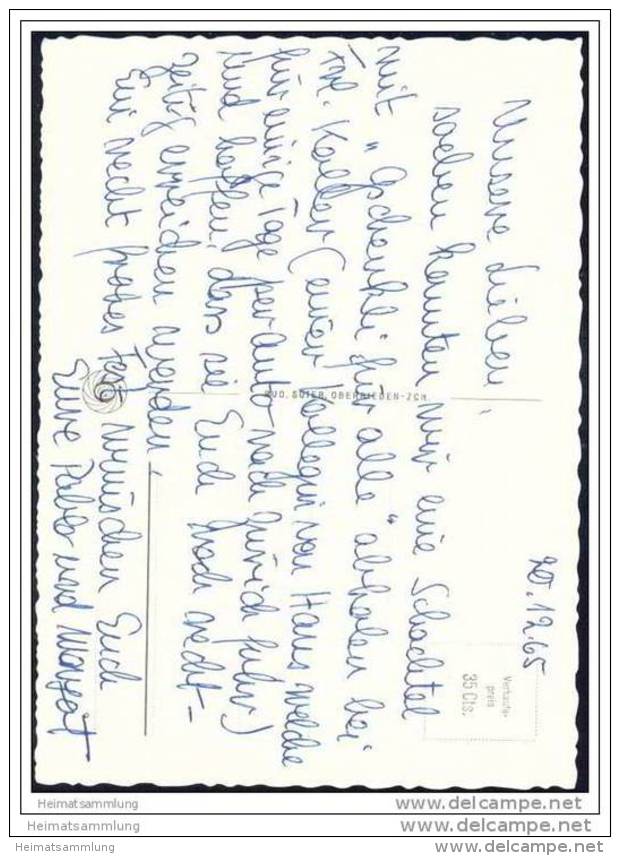 20.12.65
Unsere Lieben,
soeben konnten wir eine Schachtel
mit "Gschenkli für alle" abholen bei
Frl. Koller (einer Kollegin von Hans welche
für einige Tage per auto nach Zürich fuhr)
und hoffen, dass sie Euch noch recht-
zeitig erreichen werden.
Ein recht frohes Fest wünschen Euch
Eure Pablo und Margrit
RUD. SUTER, OBERRIEDEN-ZCH.
Verkaufs-
preis
35 Cts.
Heimatsammlung
www.delcampe.net
Heimatsammlung
www.delcampe.net
Heimatsammlung
www.delcampe.net